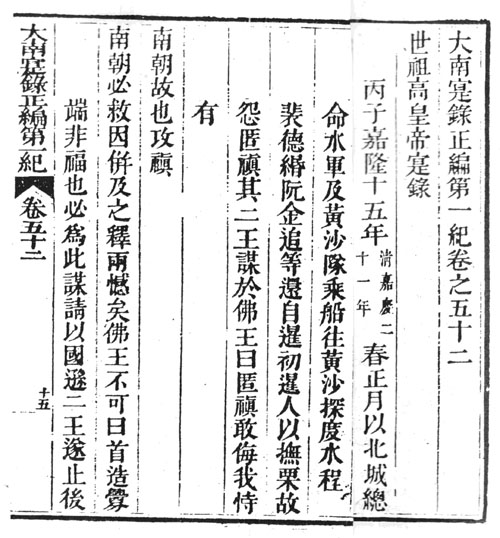 大南寔錄正編第一紀卷之五十二
世祖高皇帝寔錄
丙子嘉隆十五年清嘉慶二十一年春正月以北城總
命水軍及黃沙隊乘船往黃沙探度水程
裴德緡阮金追等還自暹初暹人以撫栗故
怨匿禛其二王謀於佛王曰匿禛敢侮我恃
有
南朝故也攻禛
南朝必救因併及之釋兩憾矣佛王不可曰首造釁
端非福也必為此謀請以國遜二王遂止後
大南寔錄正編第一紀 卷五十二
十五